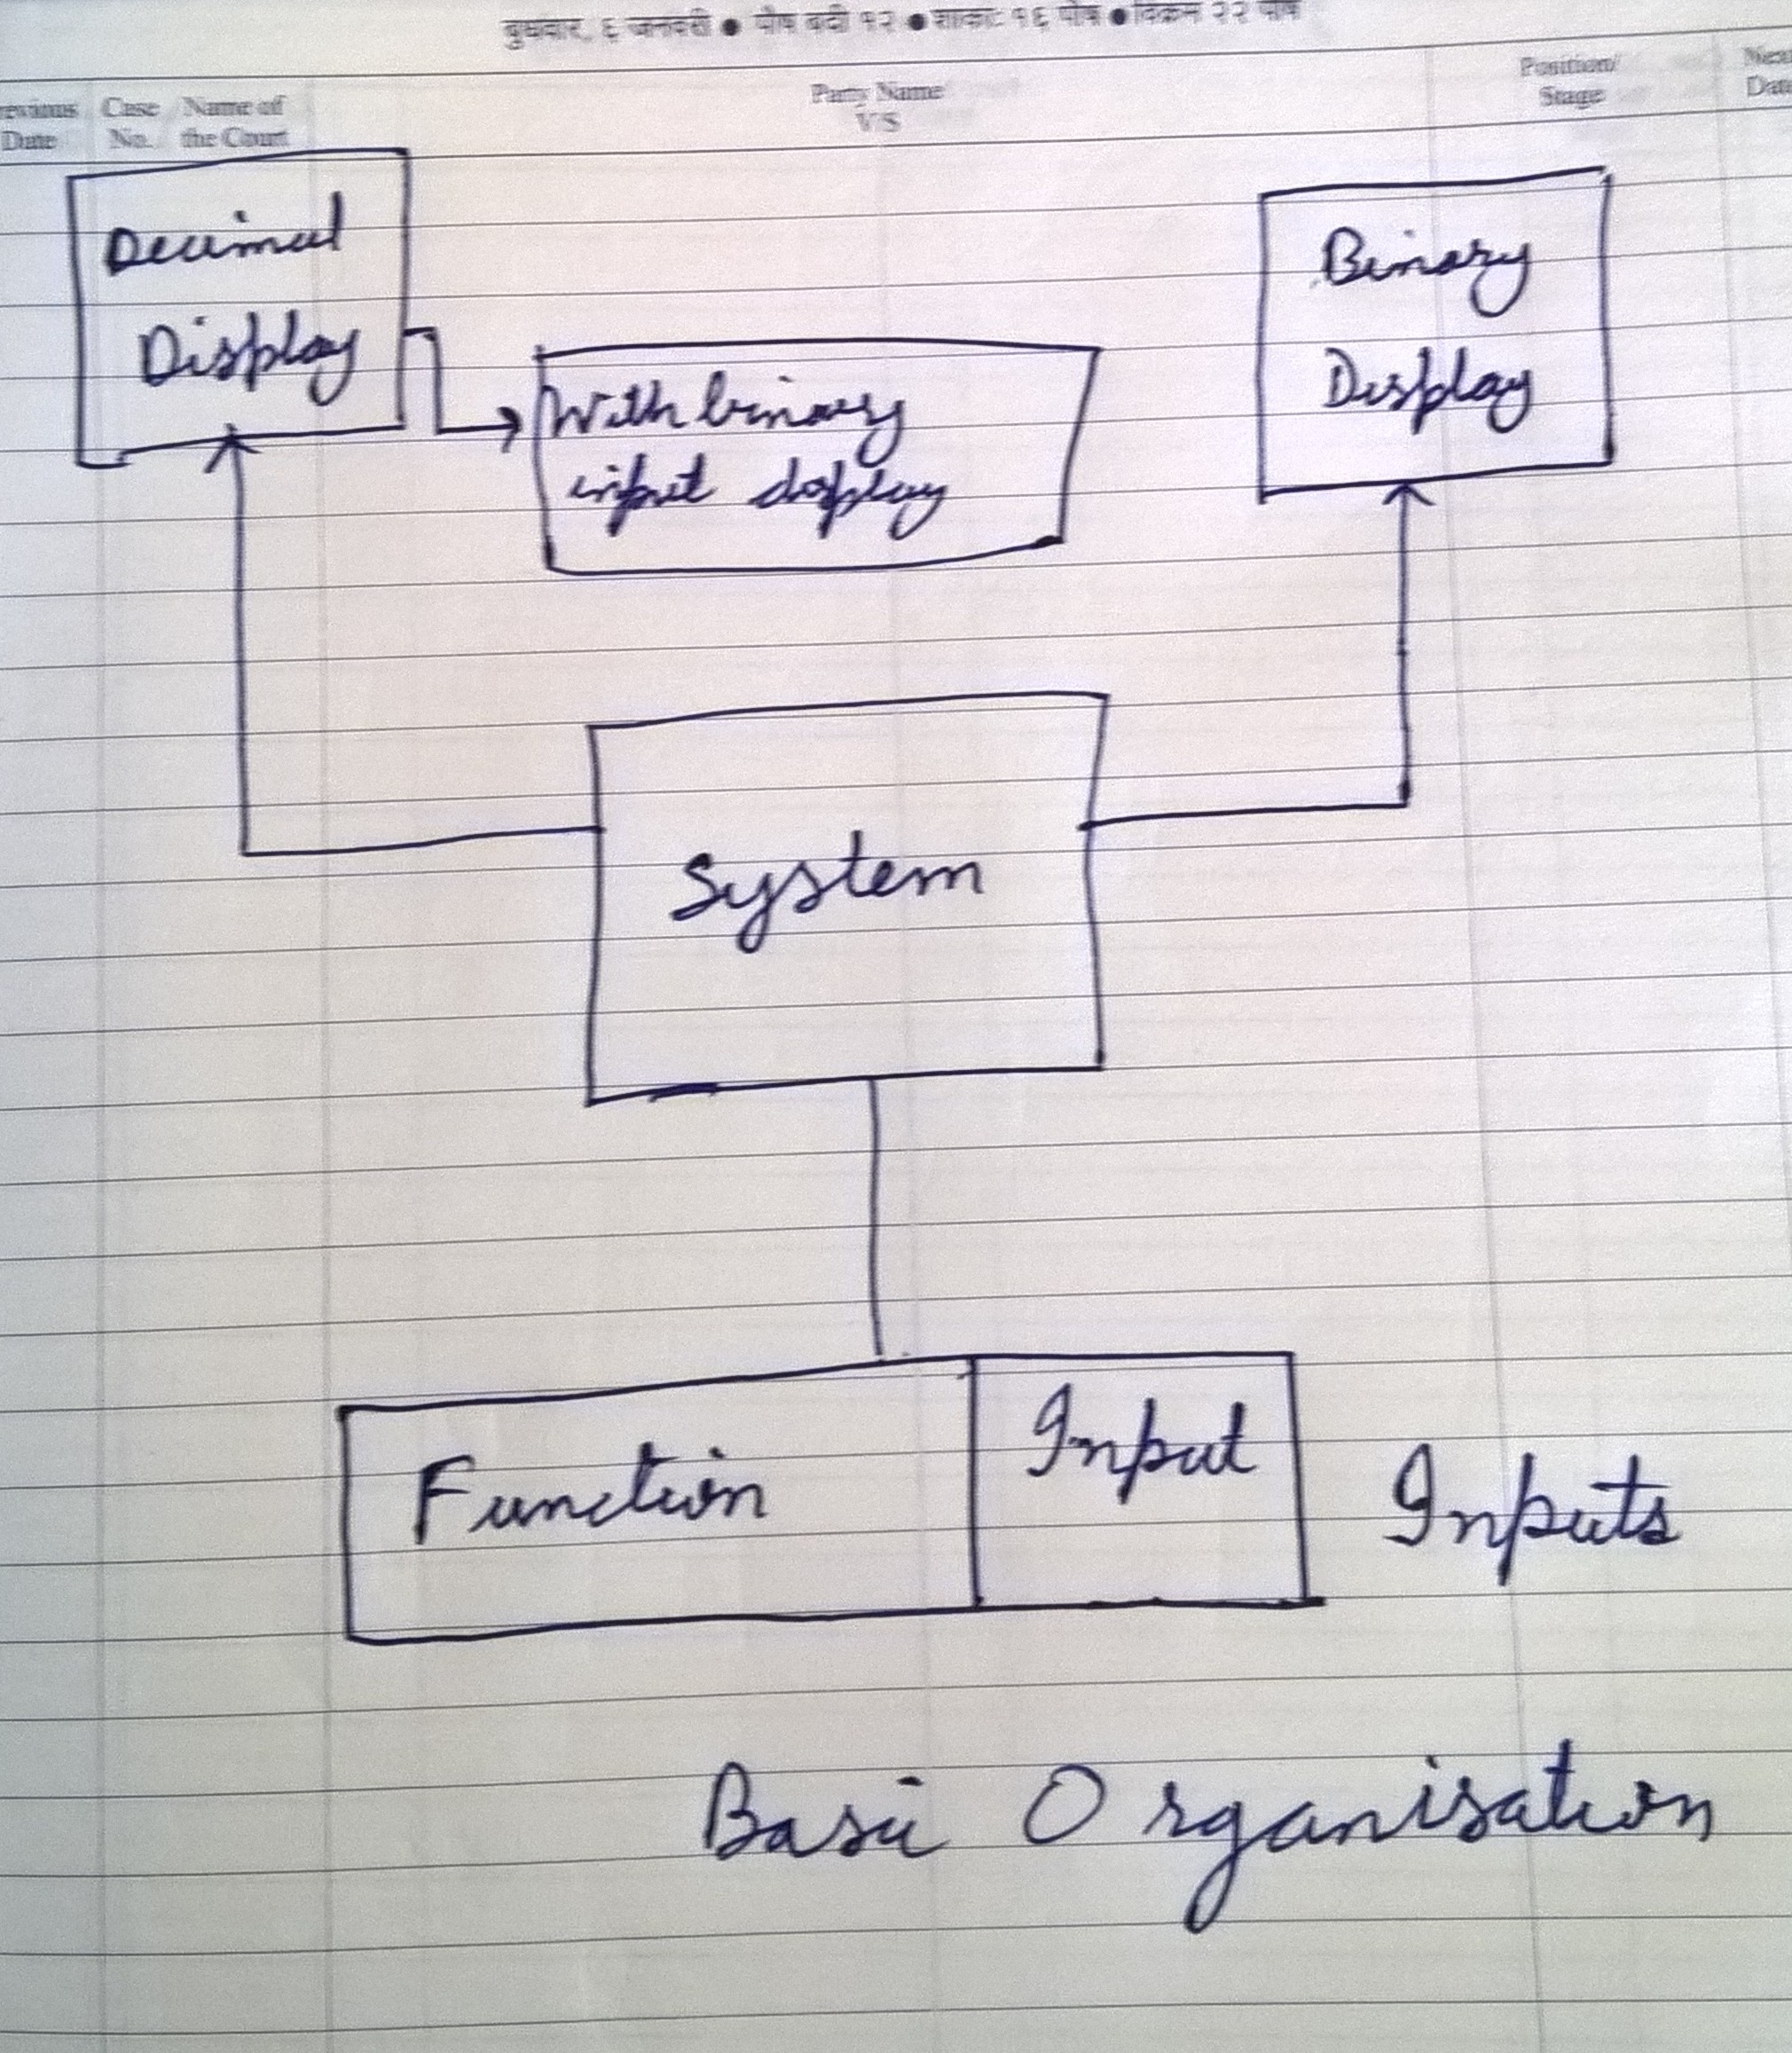 बुधवार, ६ जनवरी ● पौष बदी १२ ● शाका: १६ पौष ● विक्रम २२ पौष
Date
Case
No.
Name of
the Court
Party Name
VS
Position/
Stage
Decimal
Display
With binary
input display
Binary
Display
System
Function
Input
Inputs
Basic Organisation